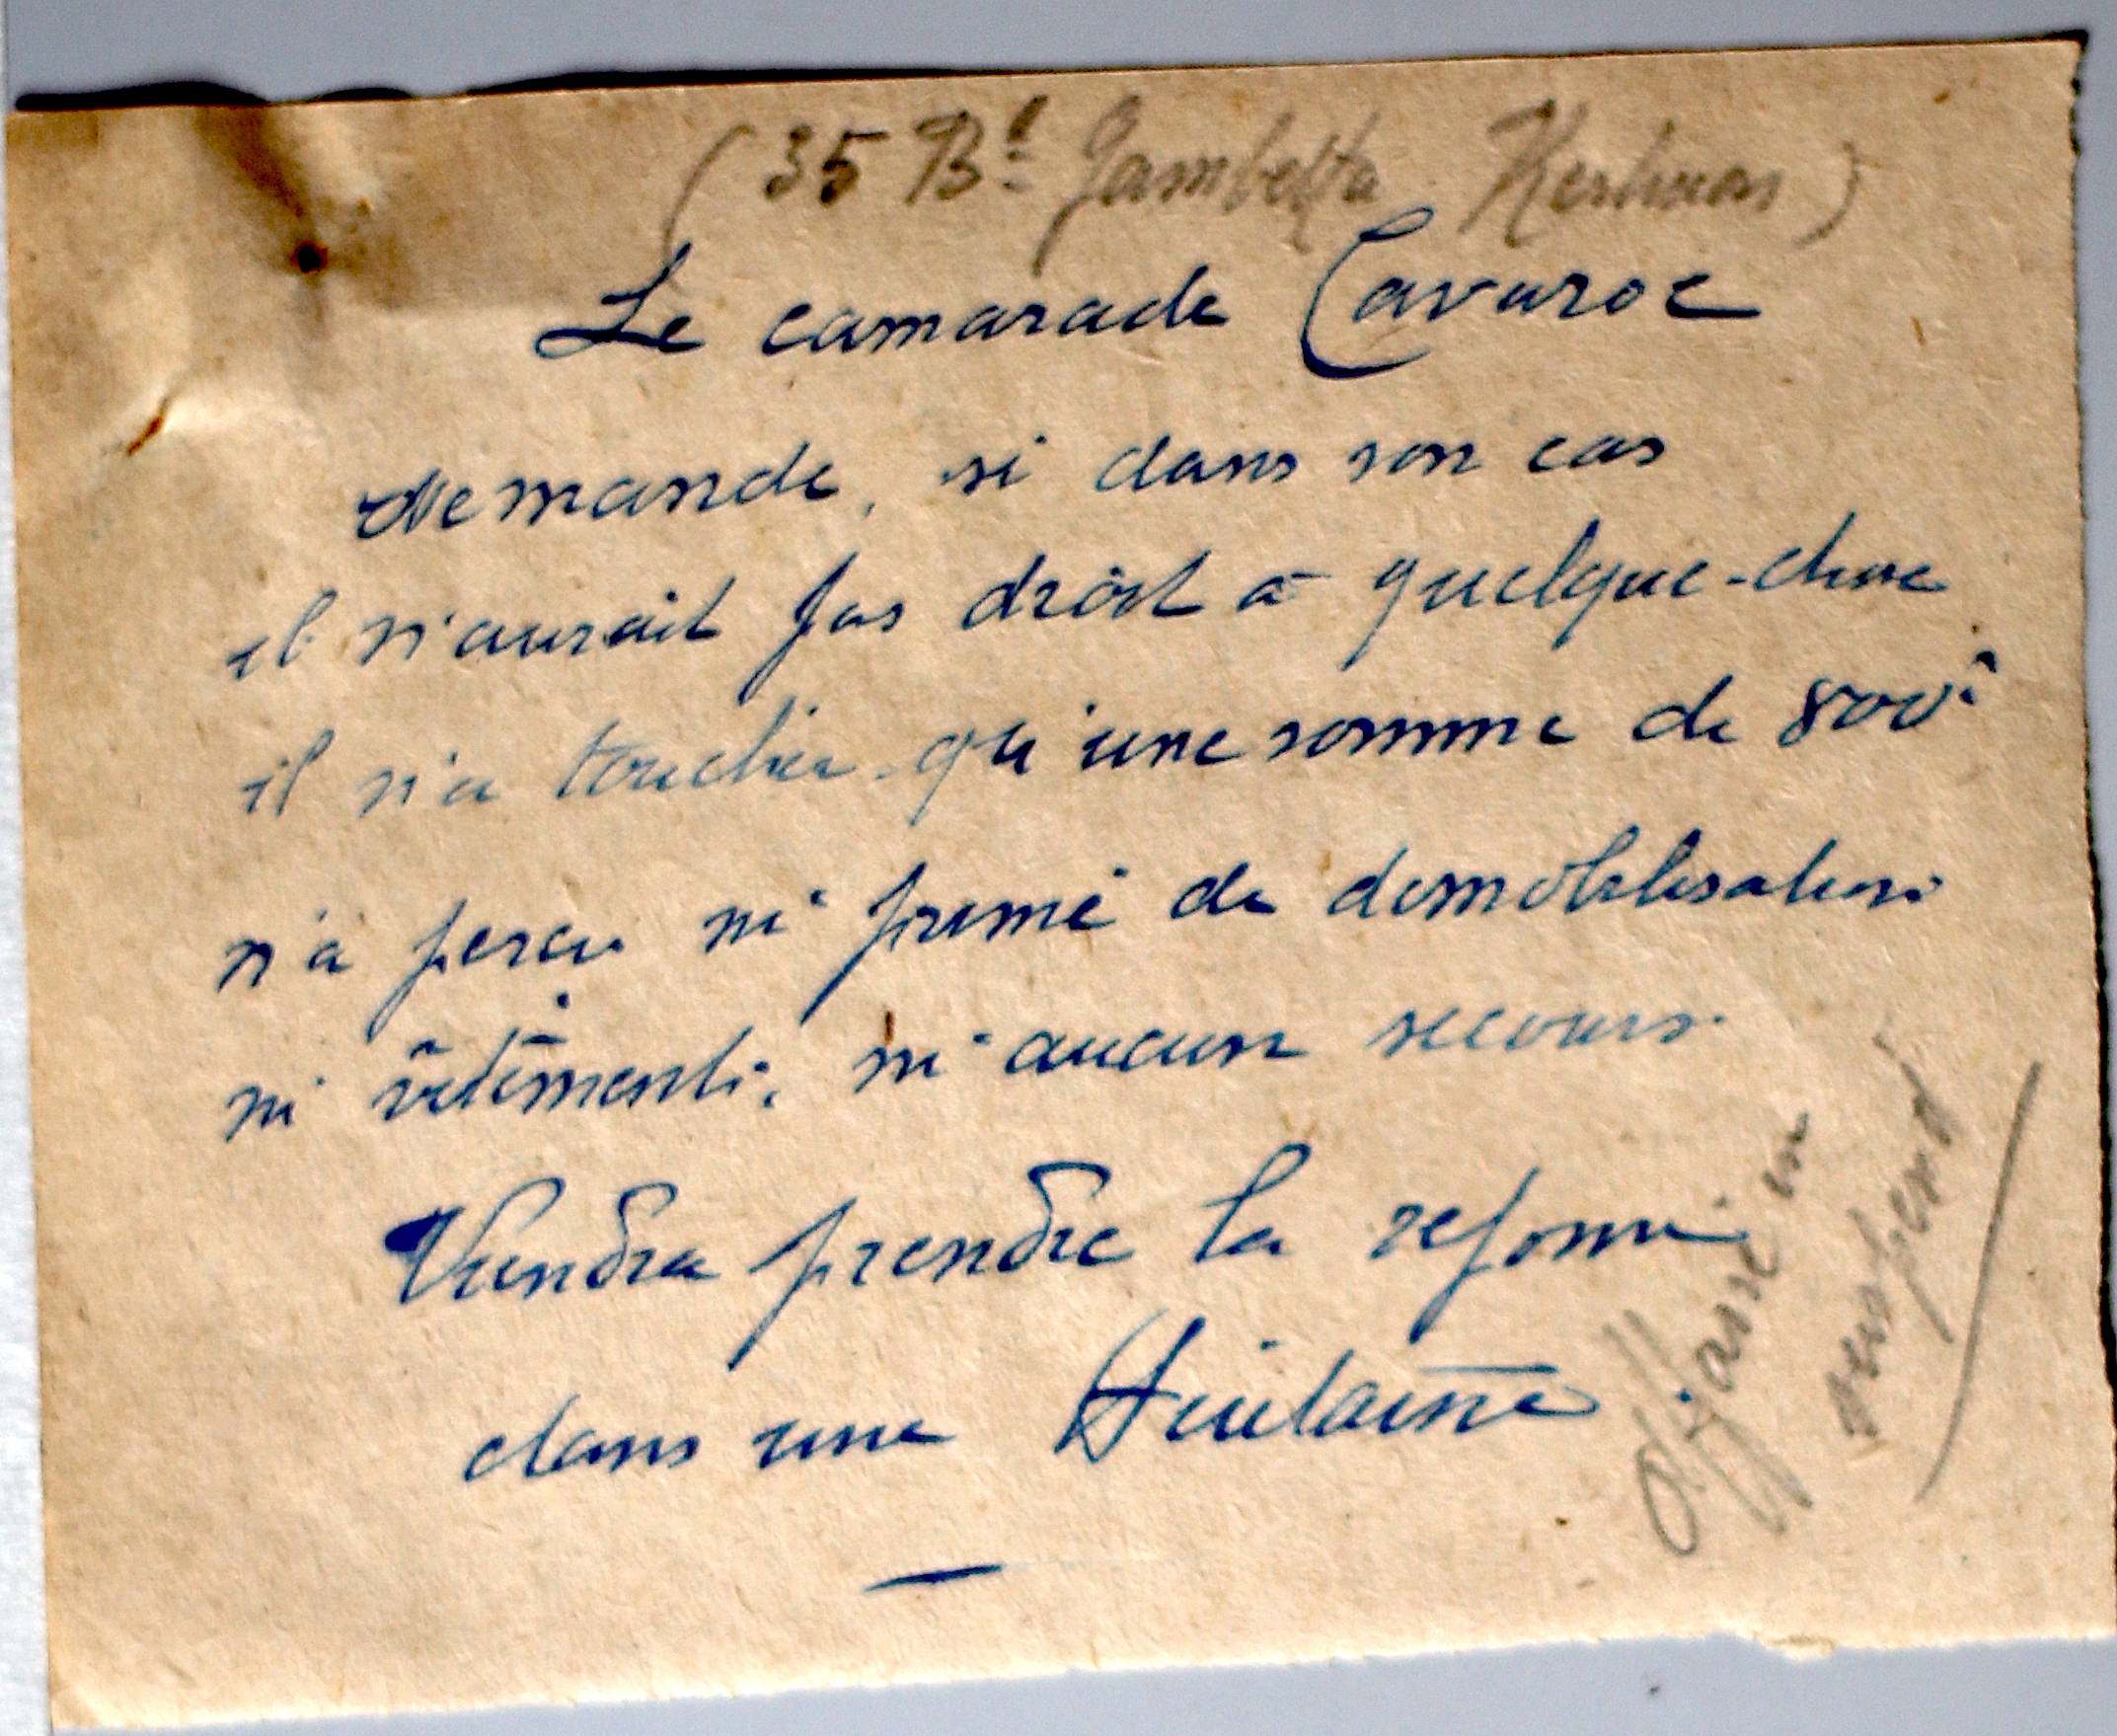 (35 Bd Gambetta Kerhuon)
Le camarade Cavaroc
demande, si dans son cas
il n'aurait pas droit à quelque-chose
il n'a touché qu'une somme de 800f
n'a perçu ni prime de démobilisation
ni vêtements, ni aucun secours.
Viendra prendre la réponse
dans une huitaine.
Affaire en
suspend